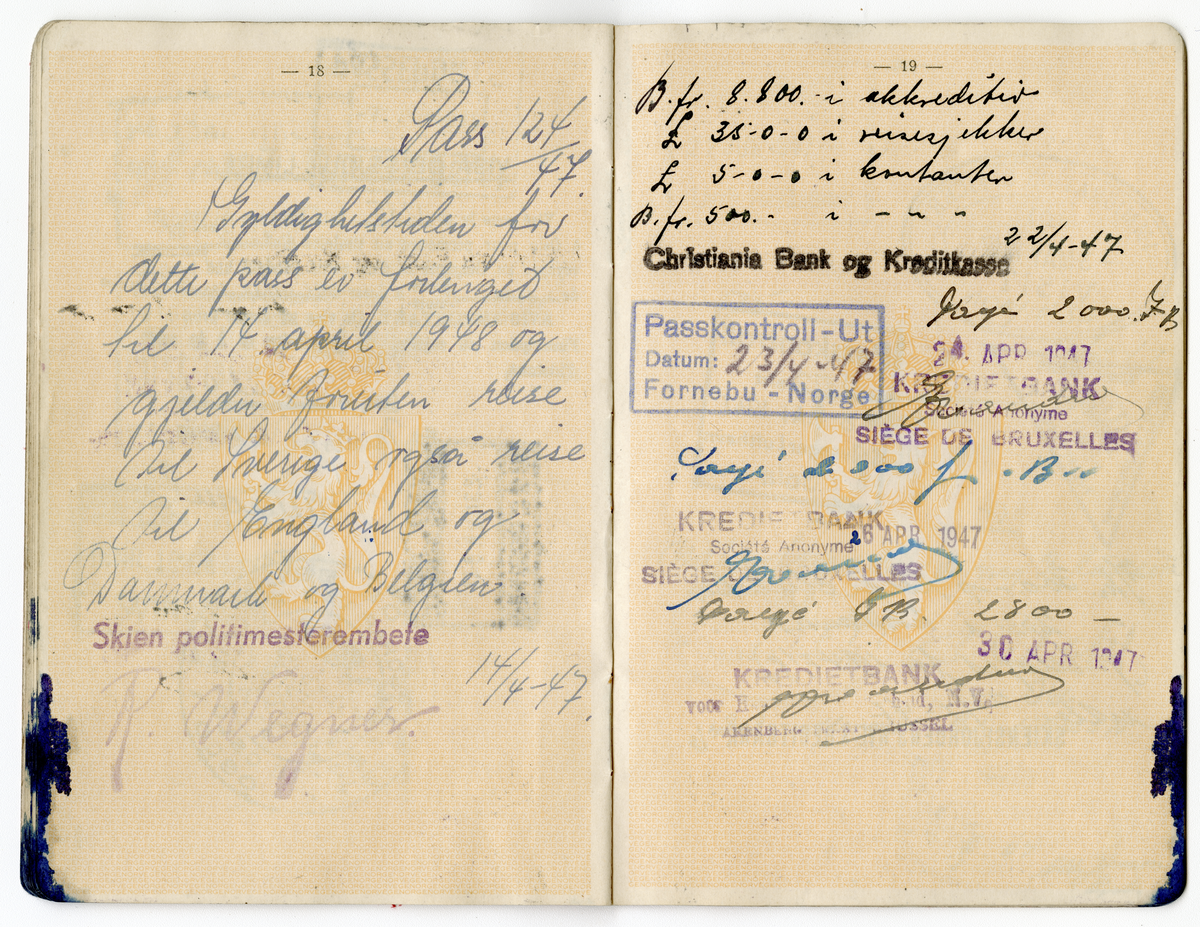 — 18 —
Pass 124/47.
Gyldighetstiden for
dette pass er forlenget
til 14 april 1948 og
gjelder foruten reise
til Sverige også reise
til England og
Danmark og Belgien
Skien politimesterembete
14/4-47.
R. Wegner.
— 19 —
B.fr. 8.800.- i akkreditiv
£ 35-0-0 i reisesjekker
£ 5-0-0 i kontanter
B.fr. 500.- i - " - "
22/4-47
Christiania Bank og Kreditkasse
Payé 2000. FB
Passkontroll - Ut
Datum: 23/4-47
Fornebu - Norge
24. APR 1947
KREDIETBANK
Société Anonyme
SIÈGE DE BRUXELLES
Payé 2000 f
KREDIETBANK
Société Anonyme
26 APR 1947
SIÈGE DE BRUXELLES
Payé FB. 2800 —
30 APR 1947
KREDIETBANK
VOOR N.V.